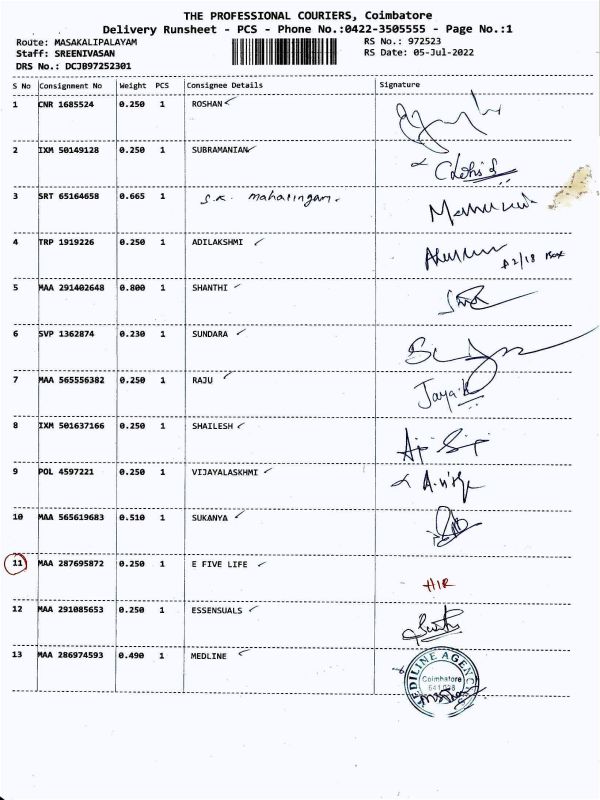 THE PROFESSIONAL COURIERS, Coimbatore
Delivery Runsheet - PCS - Phone No.:0422-3505555 - Page No.:1
Route: MASAKALIPALAYAM RS No.: 972523
Staff: SREENIVASAN RS Date: 05-Jul-2022
DRS No.: DCJB97252301
S No Consignment No Weight PCS Consignee Details Signature
1 CNR 1685524 0.250 1 ROSHAN
2 IXM 50149128 0.250 1 SUBRAMANIAN
3 SRT 65164658 0.665 1 S.K. mahalingam.
4 TRP 1919226 0.250 1 ADILAKSHMI
5 MAA 291402648 0.800 1 SHANTHI
6 SVP 1362874 0.230 1 SUNDARA
7 MAA 565556382 0.250 1 RAJU
8 IXM 501637166 0.250 1 SHAILESH
9 POL 4597221 0.250 1 VIJAYALASKHMI
10 MAA 565619683 0.510 1 SUKANYA
11 MAA 287695872 0.250 1 E FIVE LIFE
HIR
12 MAA 291085653 0.250 1 ESSENSUALS
13 MAA 286974593 0.490 1 MEDLINE
MEDILINE AGENCIES
Coimbatore